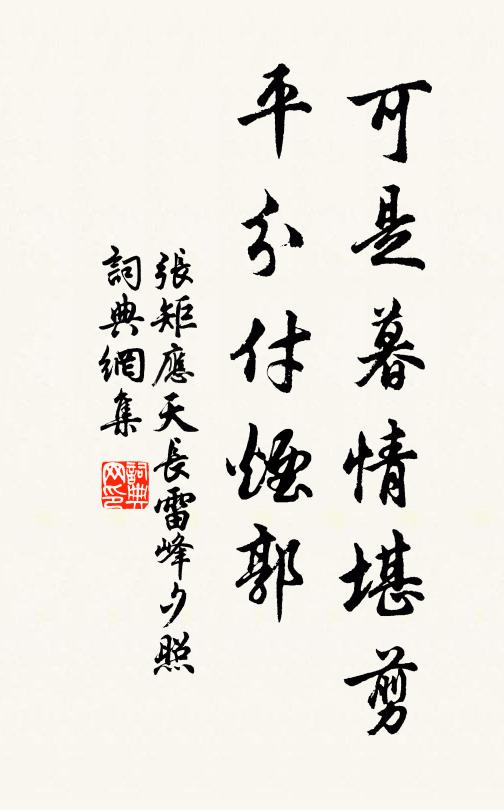 可是暮情堪剪
平分付煙郭
張矩應天長雷峰夕照
詞典網集
詞典网印